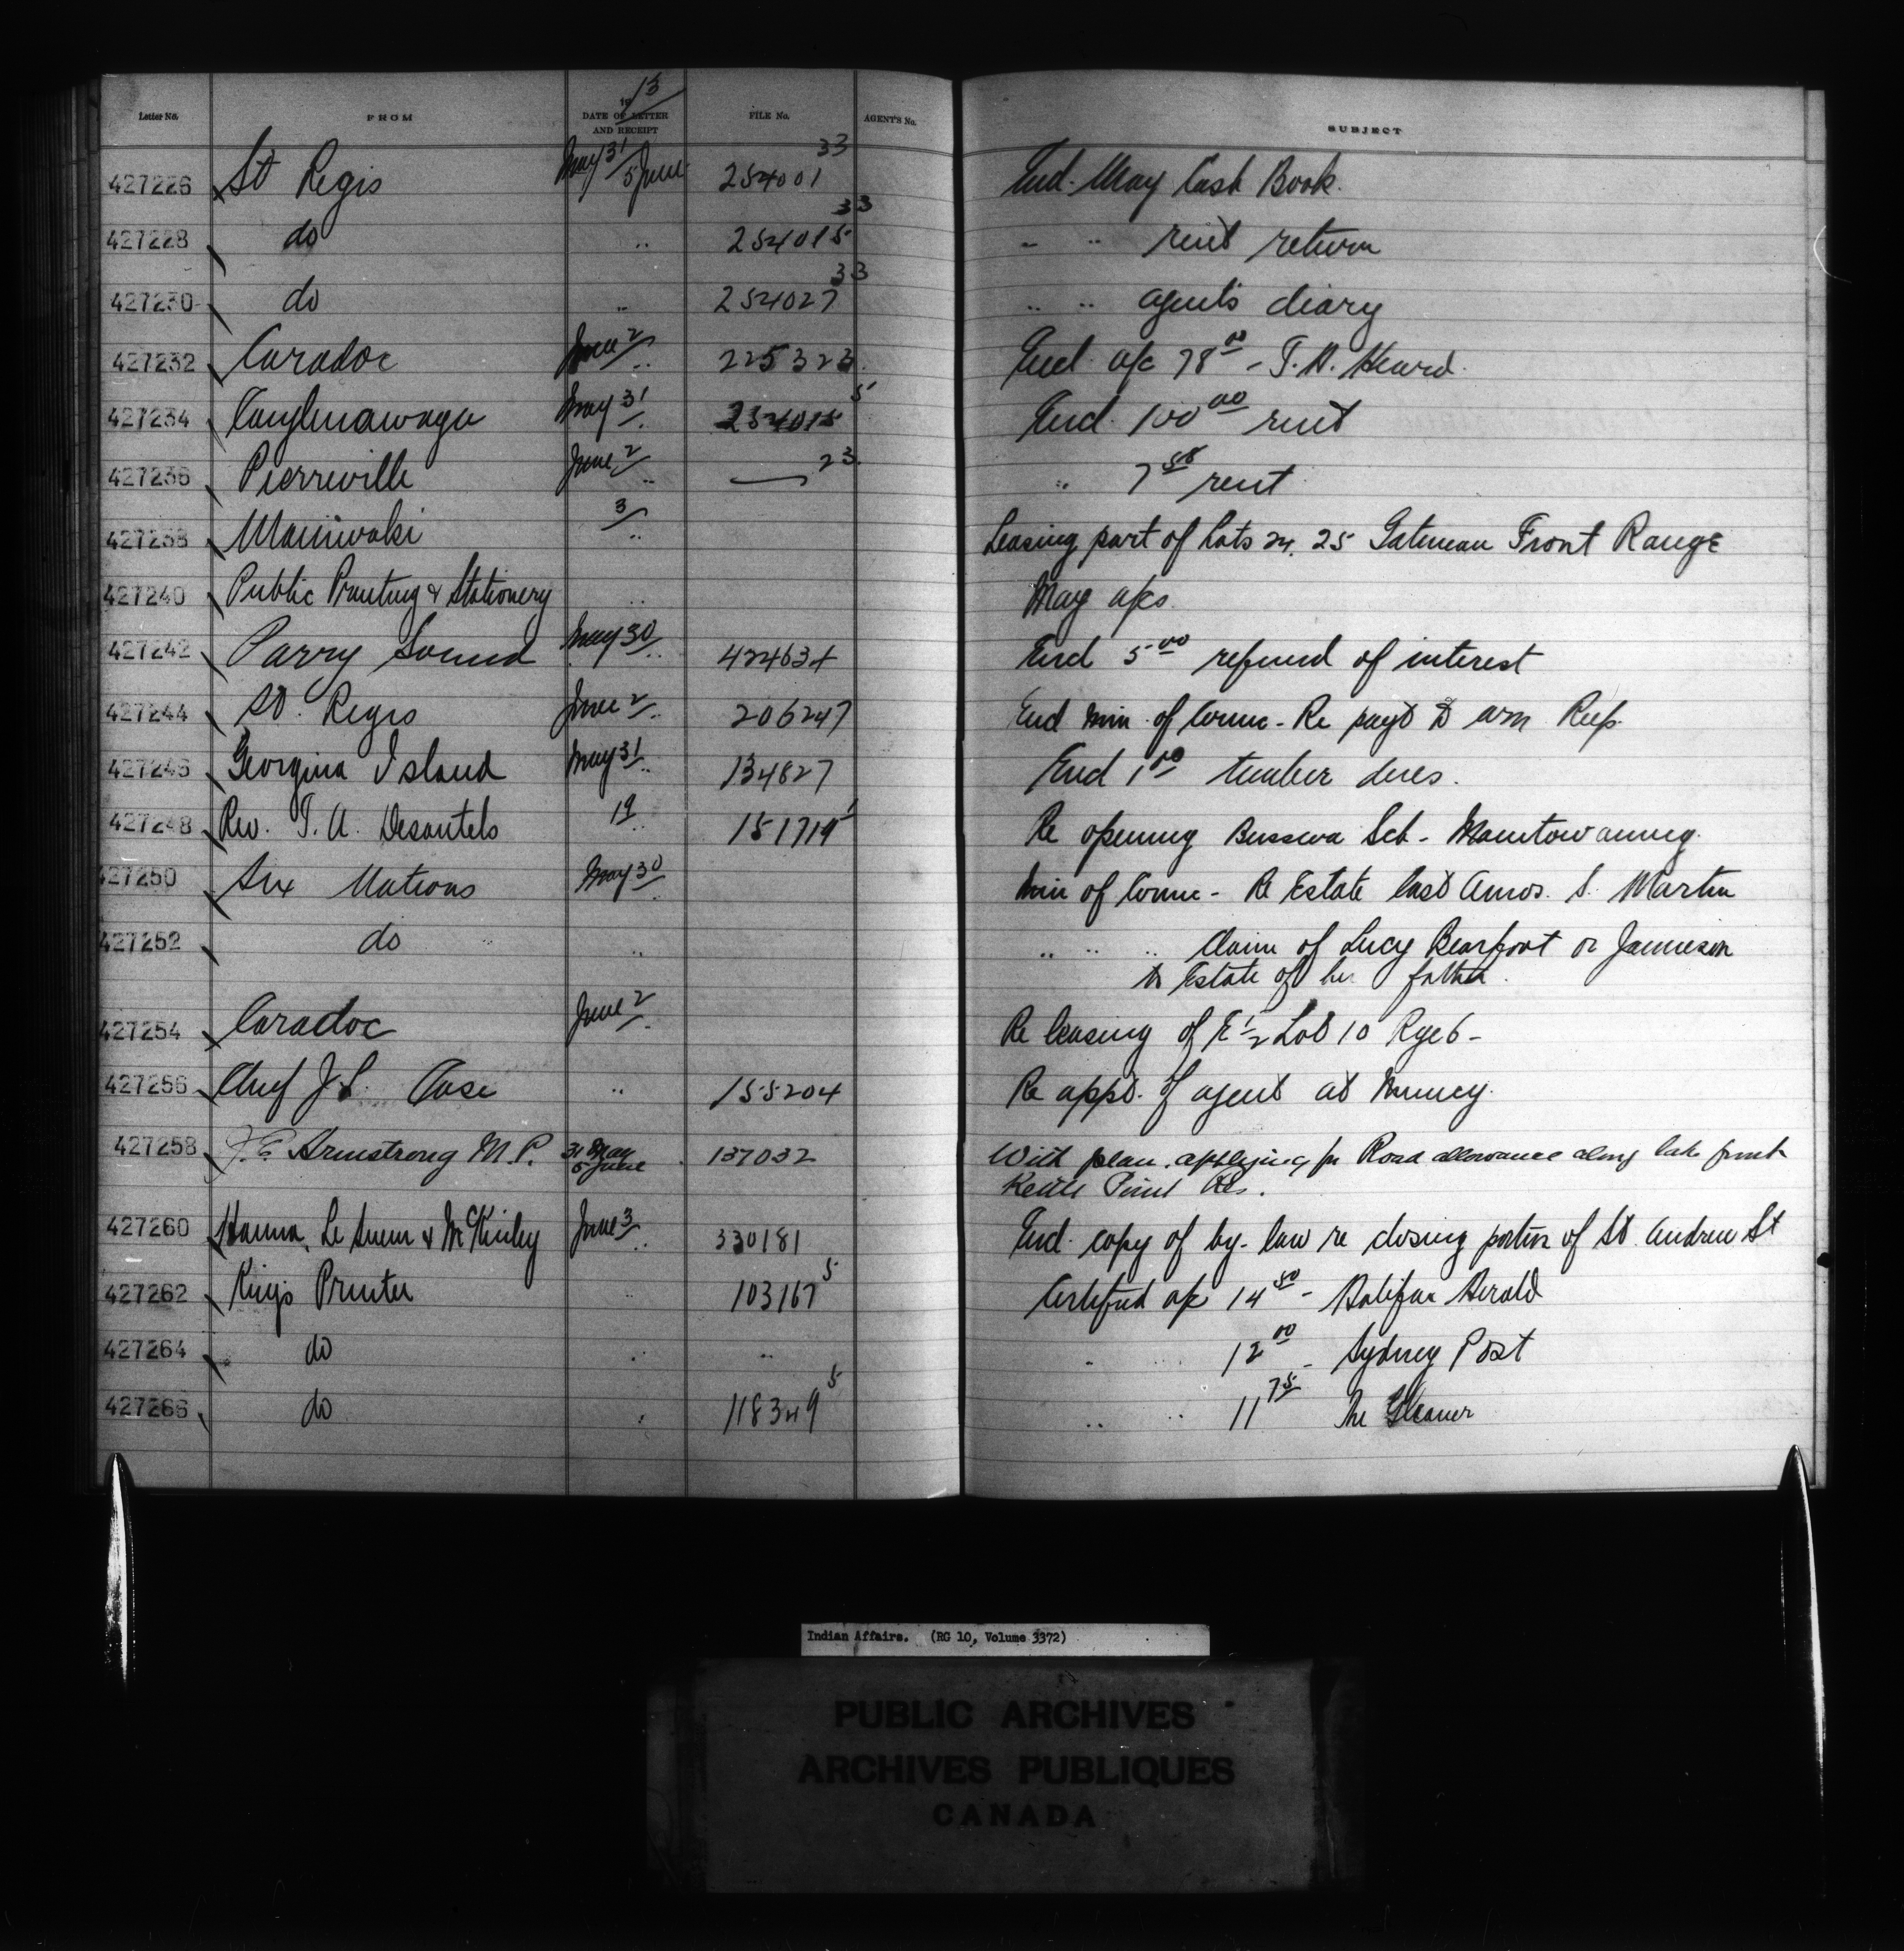 Letter No. FROM 1913 DATE OF LETTER AND RECEIPT FILE No. AGENT'S No. SUBJECT
427226 St Regis May 31/5 June 254001 33 Encl. May Cash Book.
427228 do .. 254015 33 " .. rent return
427230 do .. 254027 33 .. .. agent's diary
427232 Caradoc June 2 .. 225323 Encl. a/c 78 00 - T.A. Heard.
427234 Caughnawaga May 31 .. 254015 5 Encl. 100 00 rent
427236 Pierreville June 2 .. — 23 .. 7 58 rent
427238 Maniwaki 3 .. Leasing part of Lots 24. 25 Gatineau Front Range
427240 Public Printing & Stationery .. May a/cs.
427242 Parry Sound May 30 .. 424634 Encl 5 00 refund of interest
427244 St. Regis June 2 .. 206247 Encl min. of Counc - Re payt to
427246 Georgina Island May 31 .. 134827 Encl 1 00 timber dues.
427248 Rev. T. A. Desautels 19 .. 151719 1 Re opening Sch - Manitowaning.
427250 Six Nations May 30 .. Min of Counc - Re Estate last Amos. S. Martin
427252 do .. .. .. .. Claim of Lucy Bearfoot or Jamieson
to Estate of her father.
427254 Caradoc June 2 .. Re leasing of E 1/2 Lot 10 Rge 6 -
427256 Chief J. S. Case .. 155204 Re appt. of agent at Muncey.
427258 J.E. Armstrong M.P. 31 May 5 June 137032 With plan, applying for Road allowance along lake front
Kettle Point Res.
427260 Hanna, Le Sueur & McKinley June 3 .. 330181 Encl. copy of by-law re closing portion of St. Andrew St
427262 Kings Printer .. 103167 5 Certified a/c 14 50 - Halifax Herald
427264 do .. .. .. .. 12 00 - Sydney Post
427266 do .. 118349 5 .. .. 11 75 The Gleaner
Indian Affairs. (RG 10, Volume 3372)
PUBLIC ARCHIVES
ARCHIVES PUBLIQUES
CANADA